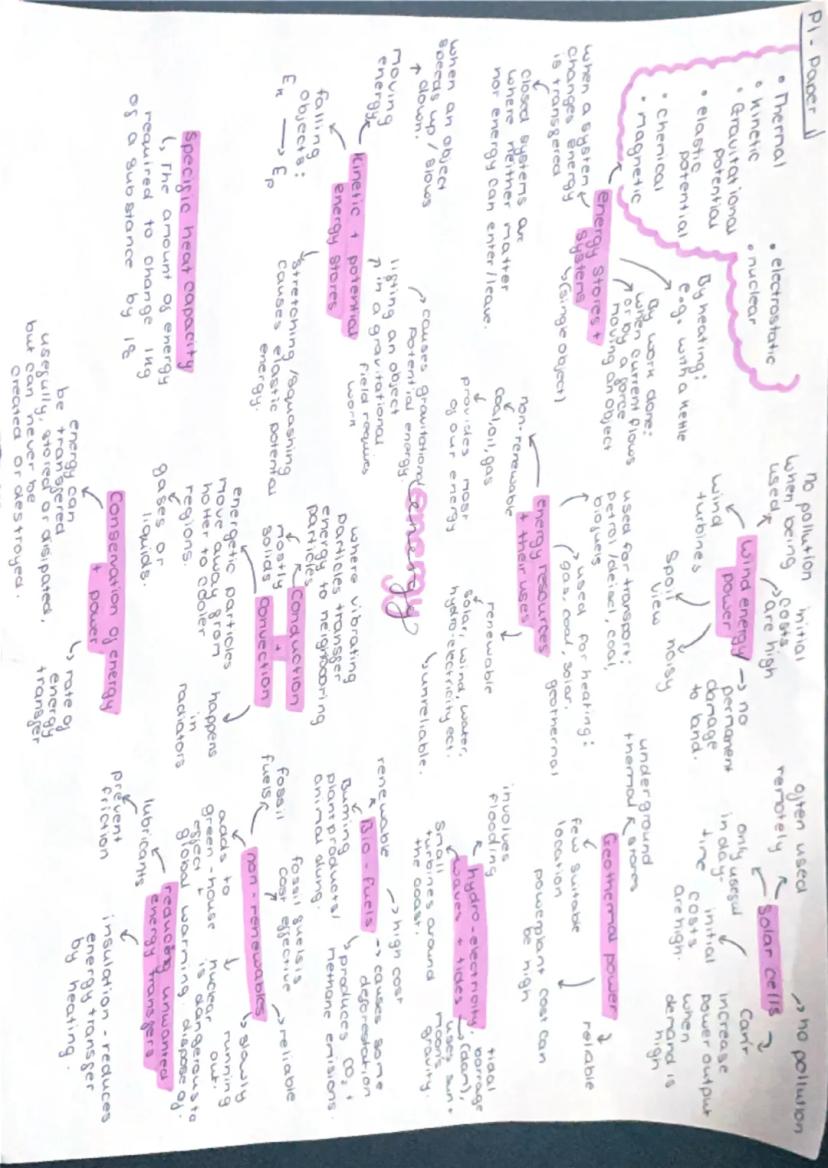 P1 - Paper 1
• Thermal
• kinetic
• Gravitational
potential
• elastic
potential
• chemical
• magnetic
• electrostatic
• nuclear
energy stores +
systems
↳ (single object)
when a system
changes energy
is transfered
closed systems are
where neither matter
nor energy can enter/leave.
By heating:
e.g. with a kettle
By work done:
when current flows
or by a force
moving an object
kinetic + potential
energy stores
when an object
speeds up / slows
down.
moving
energy
falling
objects:
Ek → Ep
causes gravitational
potential energy.
lifting an object
in a gravitational
field requires
work
stretching / squashing
causes elastic potential
energy.
specific heat capacity
↳ The amount of energy
required to change 1kg
of a substance by 1°
energy
energy resources
+ their uses
non-renewable
coal, oil, gas
provides most
of our energy
used for transport:
petrol/deisel, coal,
biofuels
used for heating:
gas, coal, solar,
geothermal
renewable
solar, wind, water,
hydro-electricity ect.
↳ unreliable.
Conduction
+
convection
mostly
solids
where vibrating
particles transfer
energy to neighboring
particles
energetic particles
move away from
hotter to cooler
regions.
gases or
liquids.
happens
in
radiators
Conservation of energy
+ power
energy can
be transfered
usefully, stored or disipated,
but can never be
created or destroyed.
↳ rate of
energy
transfer
wind energy
power
no pollution
when being
used
initial
costs
are high
wind
turbines
spoil
view
noisy
→ no
permanent
damage
to land.
solar cells
often used
remotely
→ no pollution
only useful
in day-
time
initial
costs
are high.
Can't
increase
power output
when
demand is
high
Geothermal power
underground
thermal stores
few suitable
location
powerplant cost can
be high
reliable
hydro-electricity,
waves + tides
involves
flooding
small
turbines around
the coast.
tidal
barrage
(dam),
uses sun +
moon's
gravity.
Bio-fuels
renewable
Burning
plant products/
animal dung.
→ high cost
→ causes some
deforestation
↳ produces CO2 +
methane emisions.
non-renewables
fossil
fuels
fossil fuels is
cost effective
→ reliable
↳ slowly
running
out.
adds to
green-house
effect +
global warming.
nuclear
is dangerous to
dispose of.
reducing unwanted
energy transfers
lubricants
prevent
friction
insulation - reduces
energy transfer
by heating.